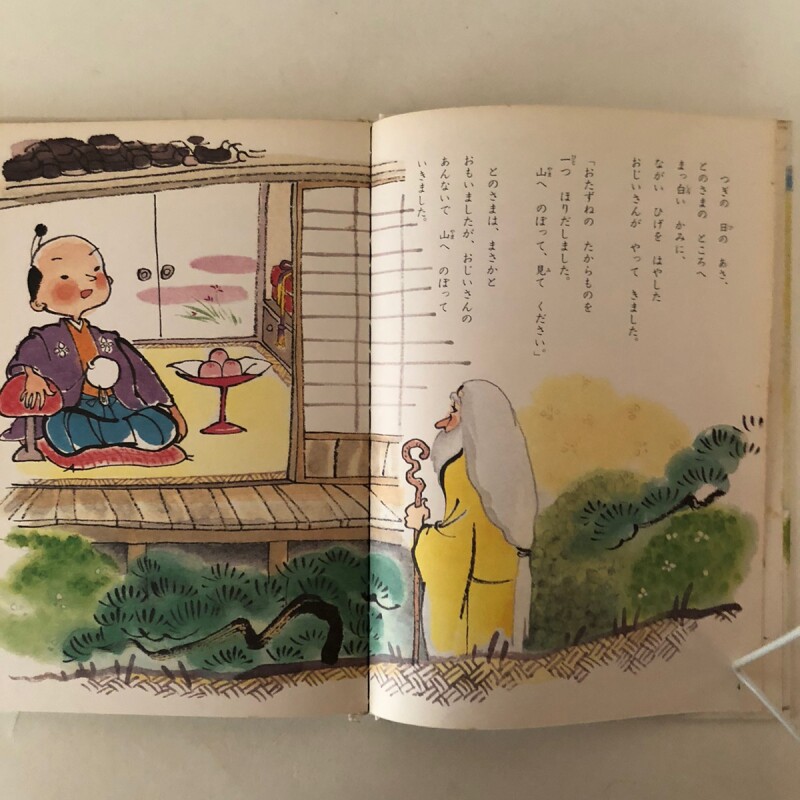 つぎの 日の あさ、
とのさまの ところへ
まっ白い かみに、
ながい ひげを はやした
おじいさんが やって きました。
「おたずねの たからものを
一つ ほりだしました。
山へ のぼって、見て ください。」
とのさまは、まさかと
おもいましたが、おじいさんの
あんないで 山へ のぼって
いきました。